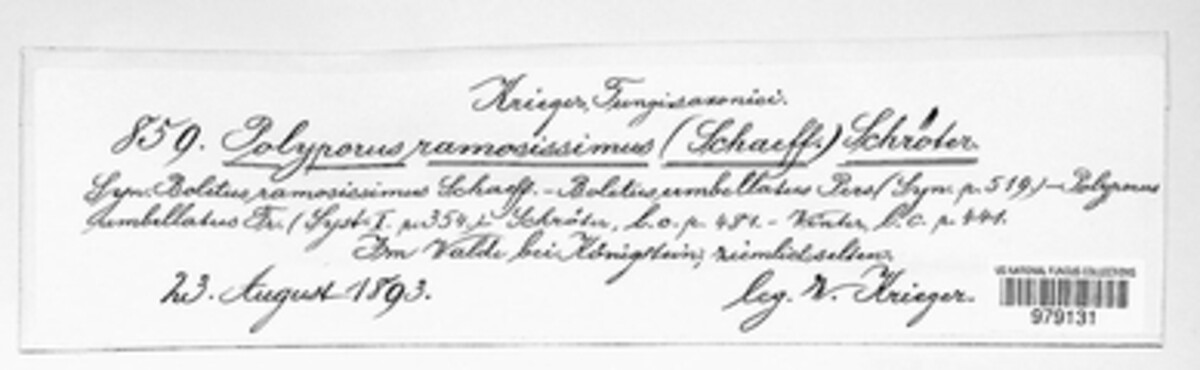 Krieger, Fungi saxonici.
859. Polyporus ramosissimus (Schaeff.) Schröter.
Syn. Boletus ramosissimus Schaeff. - Boletus umbellatus Pers (Syn. p. 519) - Polyporus
umbellatus Fr. (Syst. I. p. 354.) Schröter, l. c. p. 481. - Winter, l. c. p. 441.
Im Walde bei Königstein, ziemlich selten.
23. August 1893. leg. W. Krieger.
US NATIONAL FUNGUS COLLECTIONS
979131